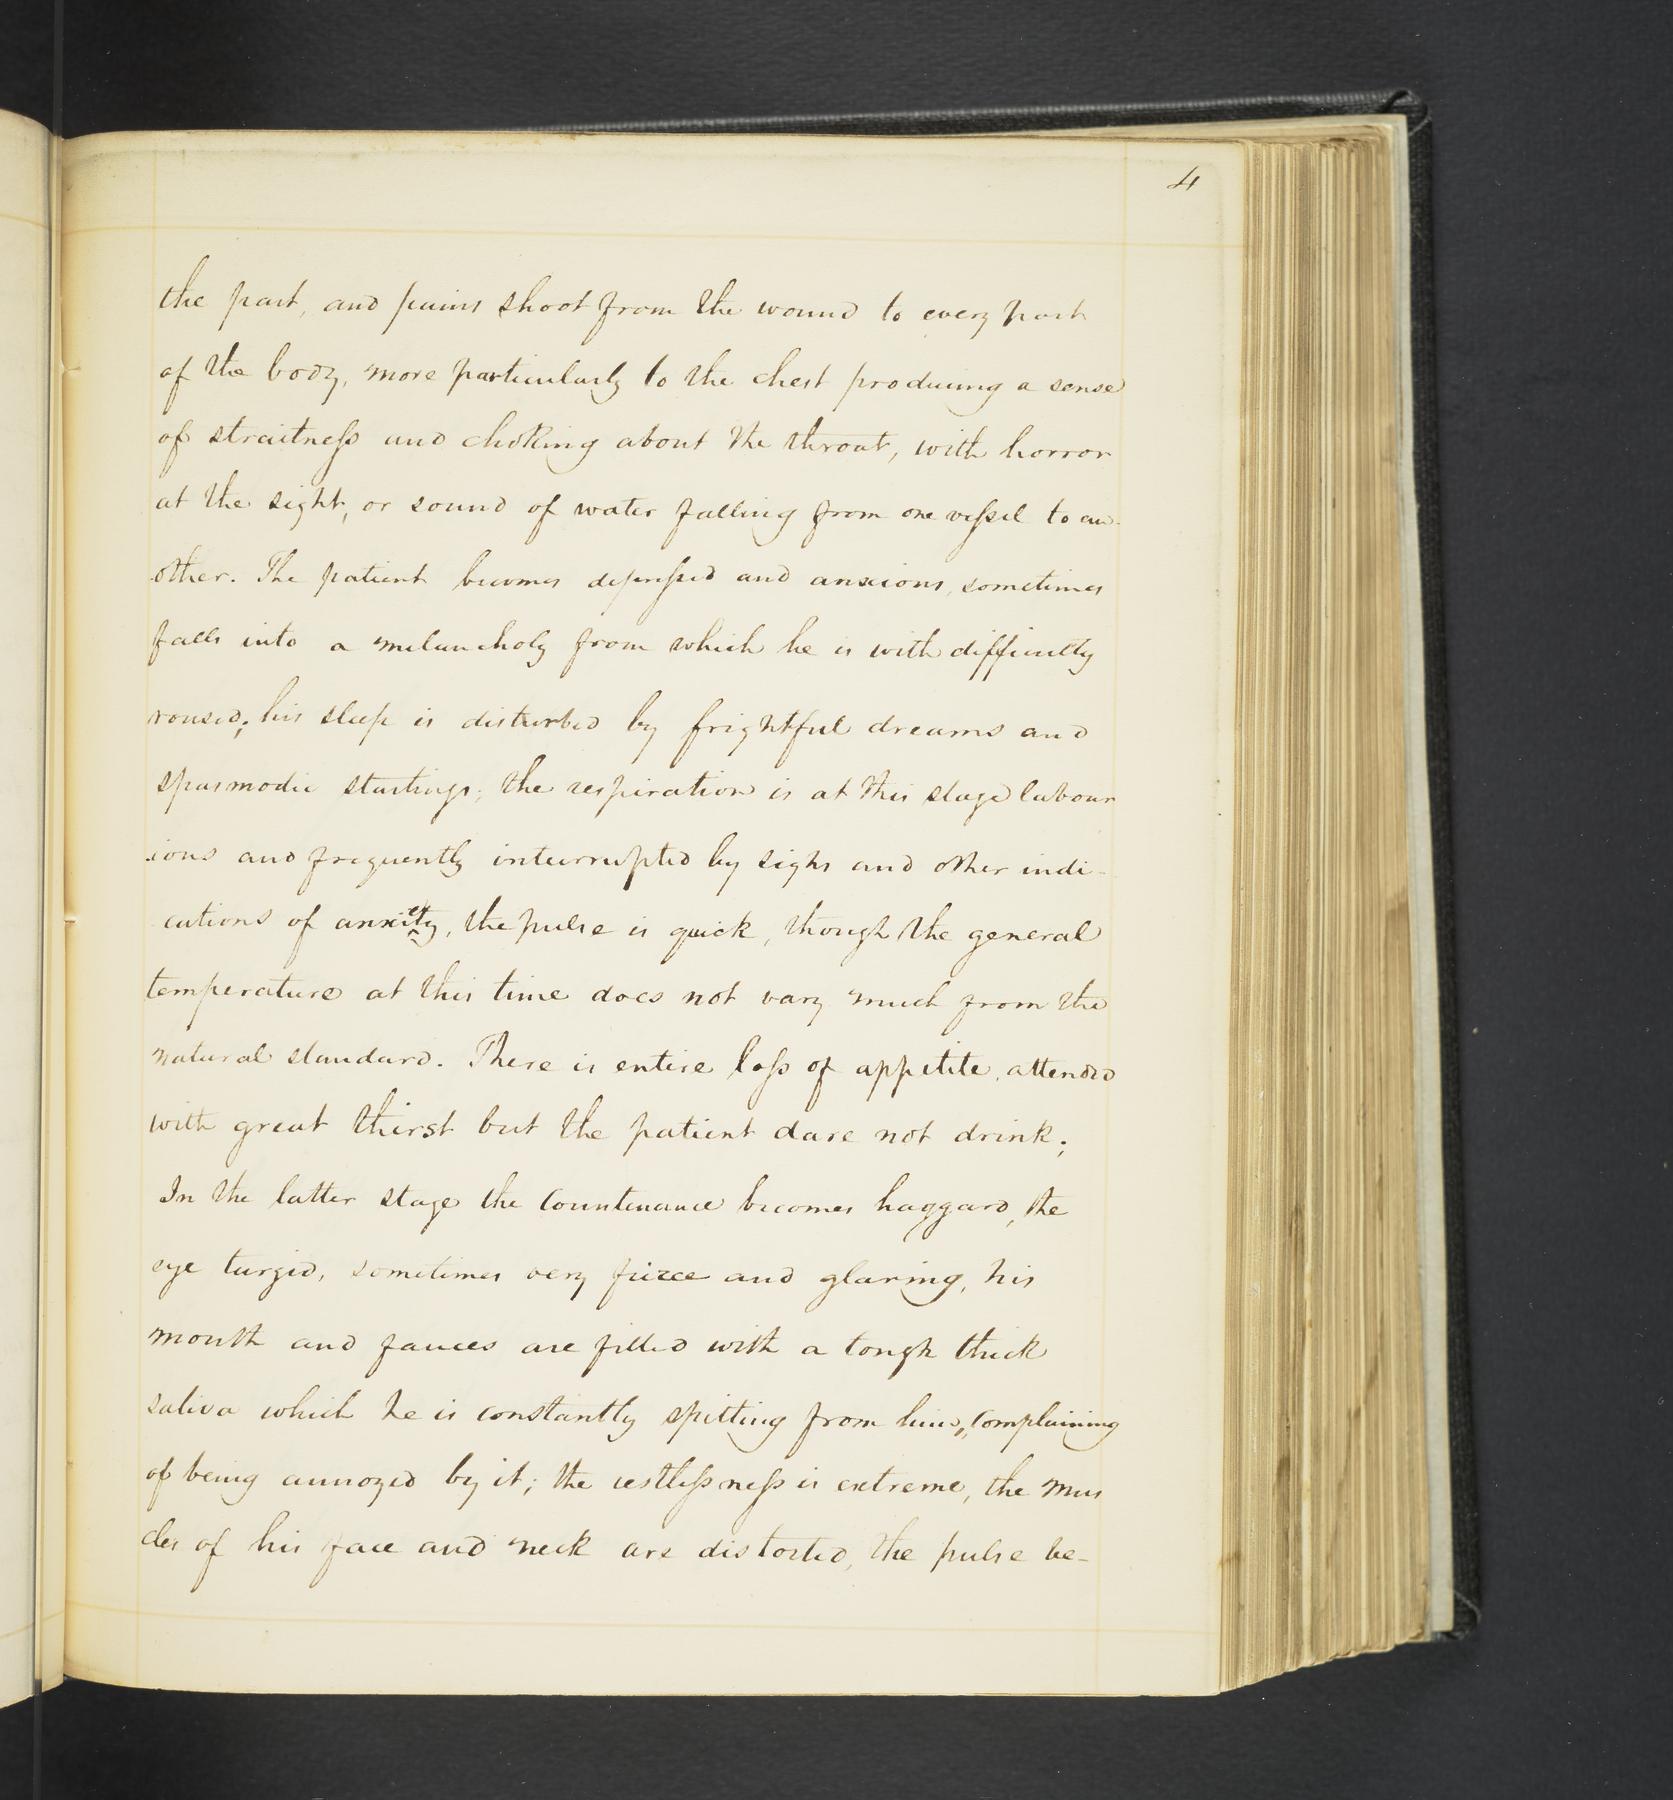 4
the part, and pains shoot from the wound to every part
of the body, more particularly to the chest producing a sense
of straitneſs and choking about the throat, with horror
at the sight, or sound of water falling from one veſsel to an-
other. The patient becomes depreſsed and anxious, sometimes
falls into a melancholy from which he is with difficulty
roused; his sleep is disturbed by frightful dreams and
spasmodic startings; the respiration is at this stage labour
ious and frequently interrupted by sighs and other indi-
cations of anxiety, the pulse is quick, though the general
temperature at this time does not vary much from the
natural standard. There is entire loſs of appetite, attended
with great thirst but the patient dare not drink;
In the latter stage the countenance becomes haggard, the
eye turgid, sometimes very fierce and glaring, his
mouth and fauces are filled with a tough thick
saliva which he is constantly spitting from him, complaining
of being annoyed by it; the restleſsneſs is extreme, the mus
cles of his face and neck are distorted, the pulse be-